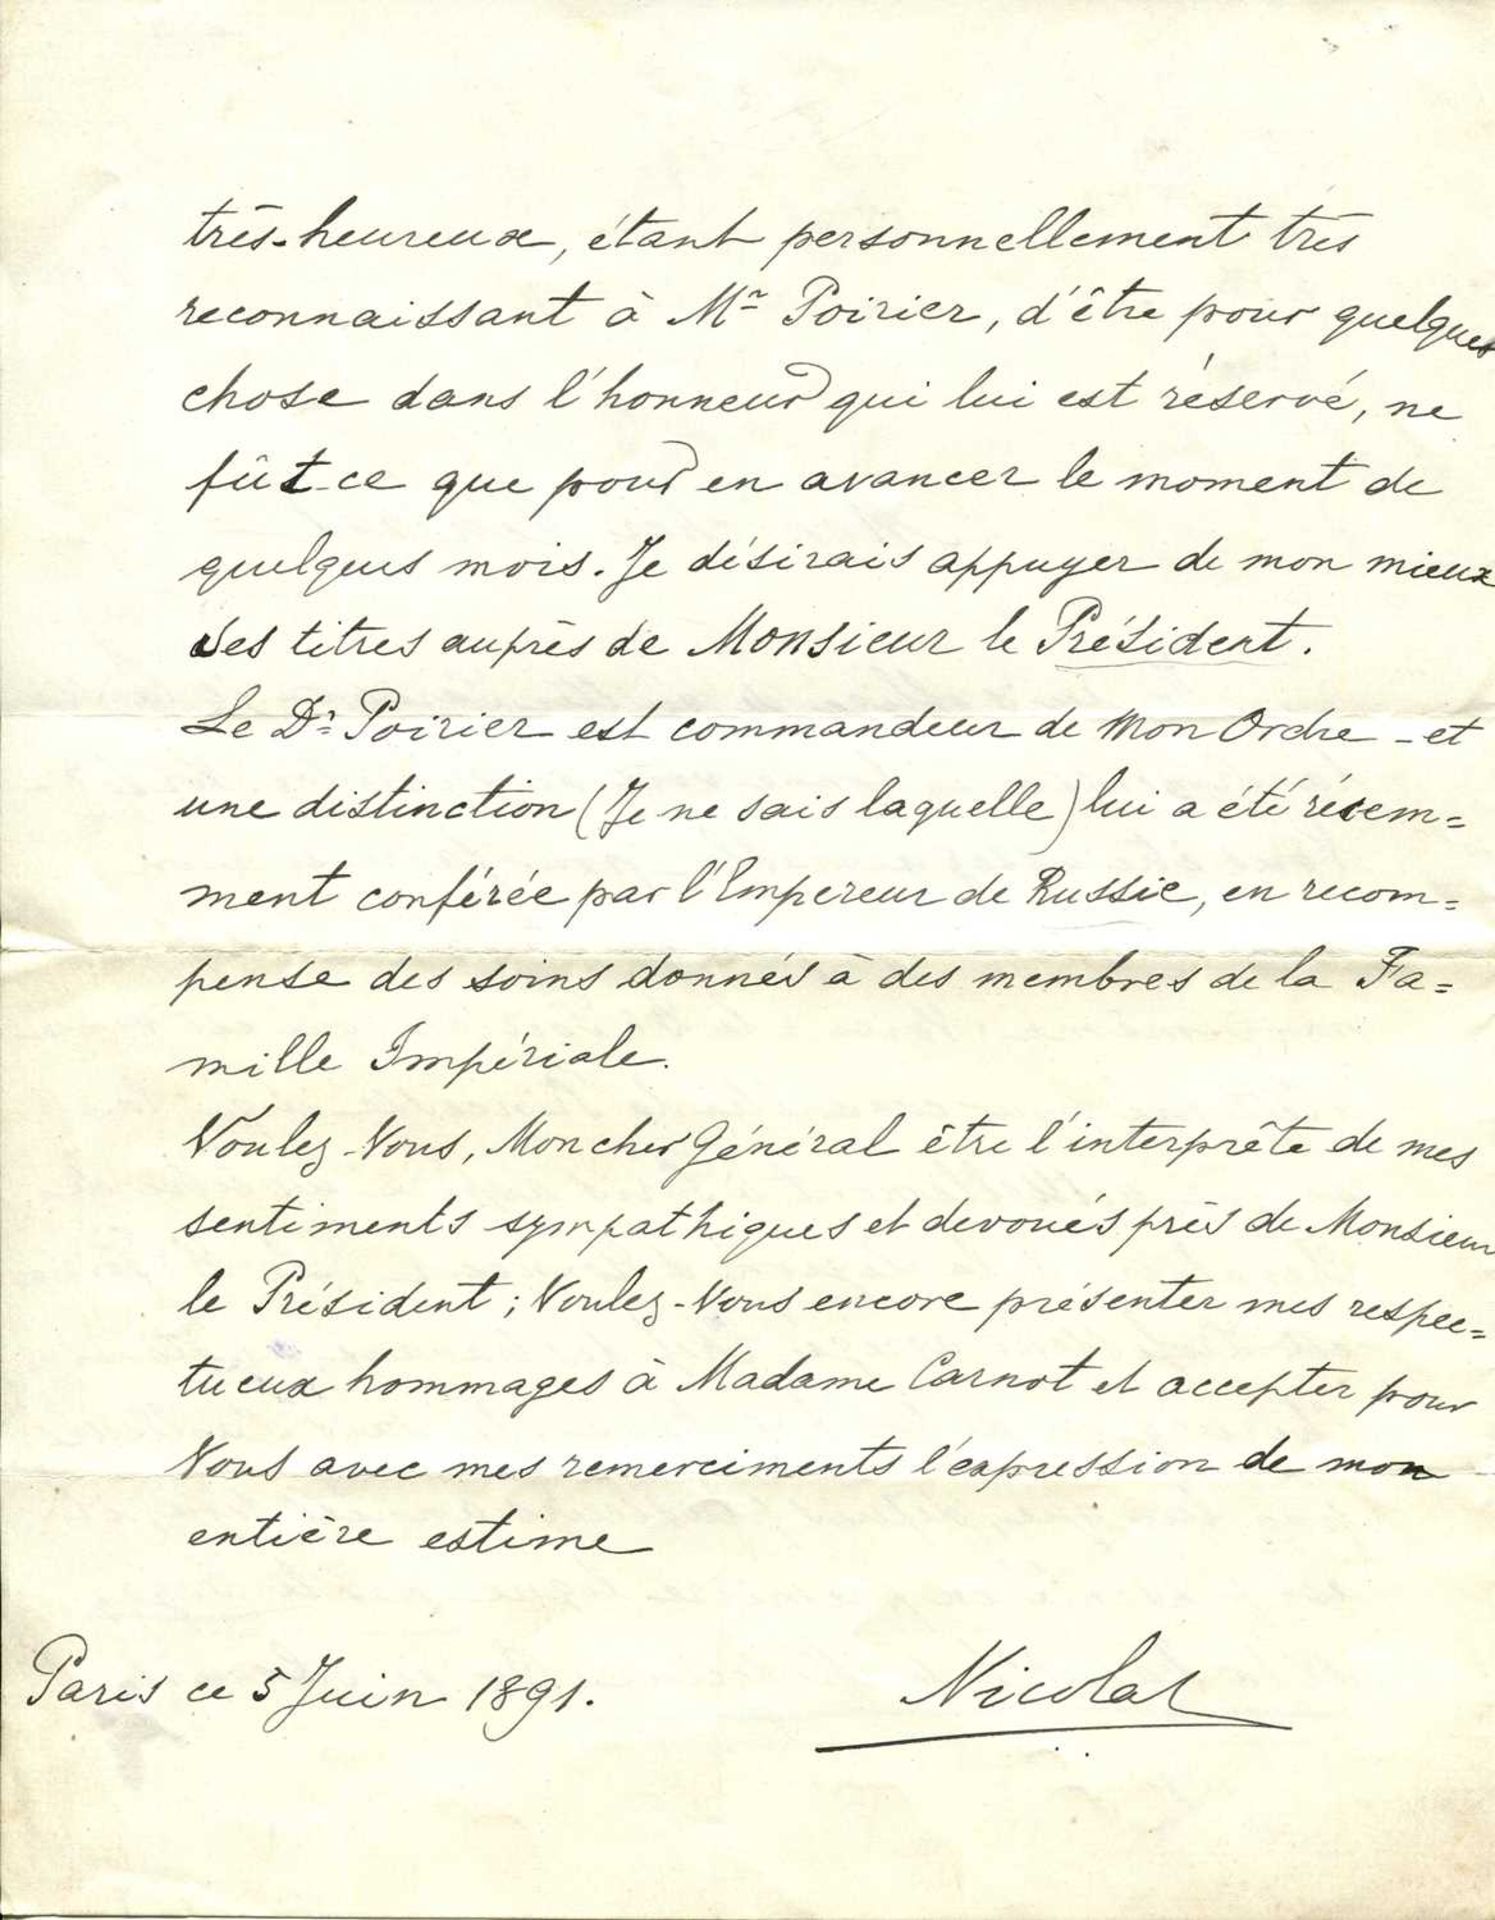 très-heureux, étant personnellement très
reconnaissant à Mr Poirier, d'être pour quelques
chose dans l'honneur qui lui est réservé, ne
fût-ce que pour en avancer le moment de
quelques mois. Je désirais appuyer de mon mieux
ses titres auprès de Monsieur le Président.
Le Dr Poirier est commandeur de mon Ordre - et
une distinction (Je ne sais laquelle) lui a été récem=
ment conférée par l'Empereur de Russie, en recom=
pense des soins donnés à des membres de la Fa=
mille Impériale.
Voulez-Vous, Mon cher Général être l'interprête de mes
sentiments sympathiques et devoués près de Monsieur
le Président ; Voulez-Vous encore présenter mes respec=
tueux hommages à Madame Carnot et accepter pour
Vous avec mes remerciments l'expression de mon
entière estime
Paris ce 5 Juin 1891.
Nicolas